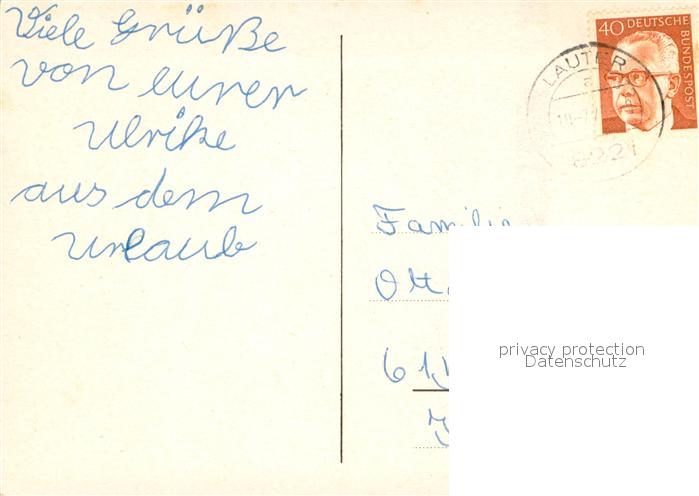 Viele Grüße
von eurer
Ulrike
aus dem
Urlaub
40 DEUTSCHE
BUNDESPOST
LAUTER
a
8221
Familie
privacy protection
Datenschutz